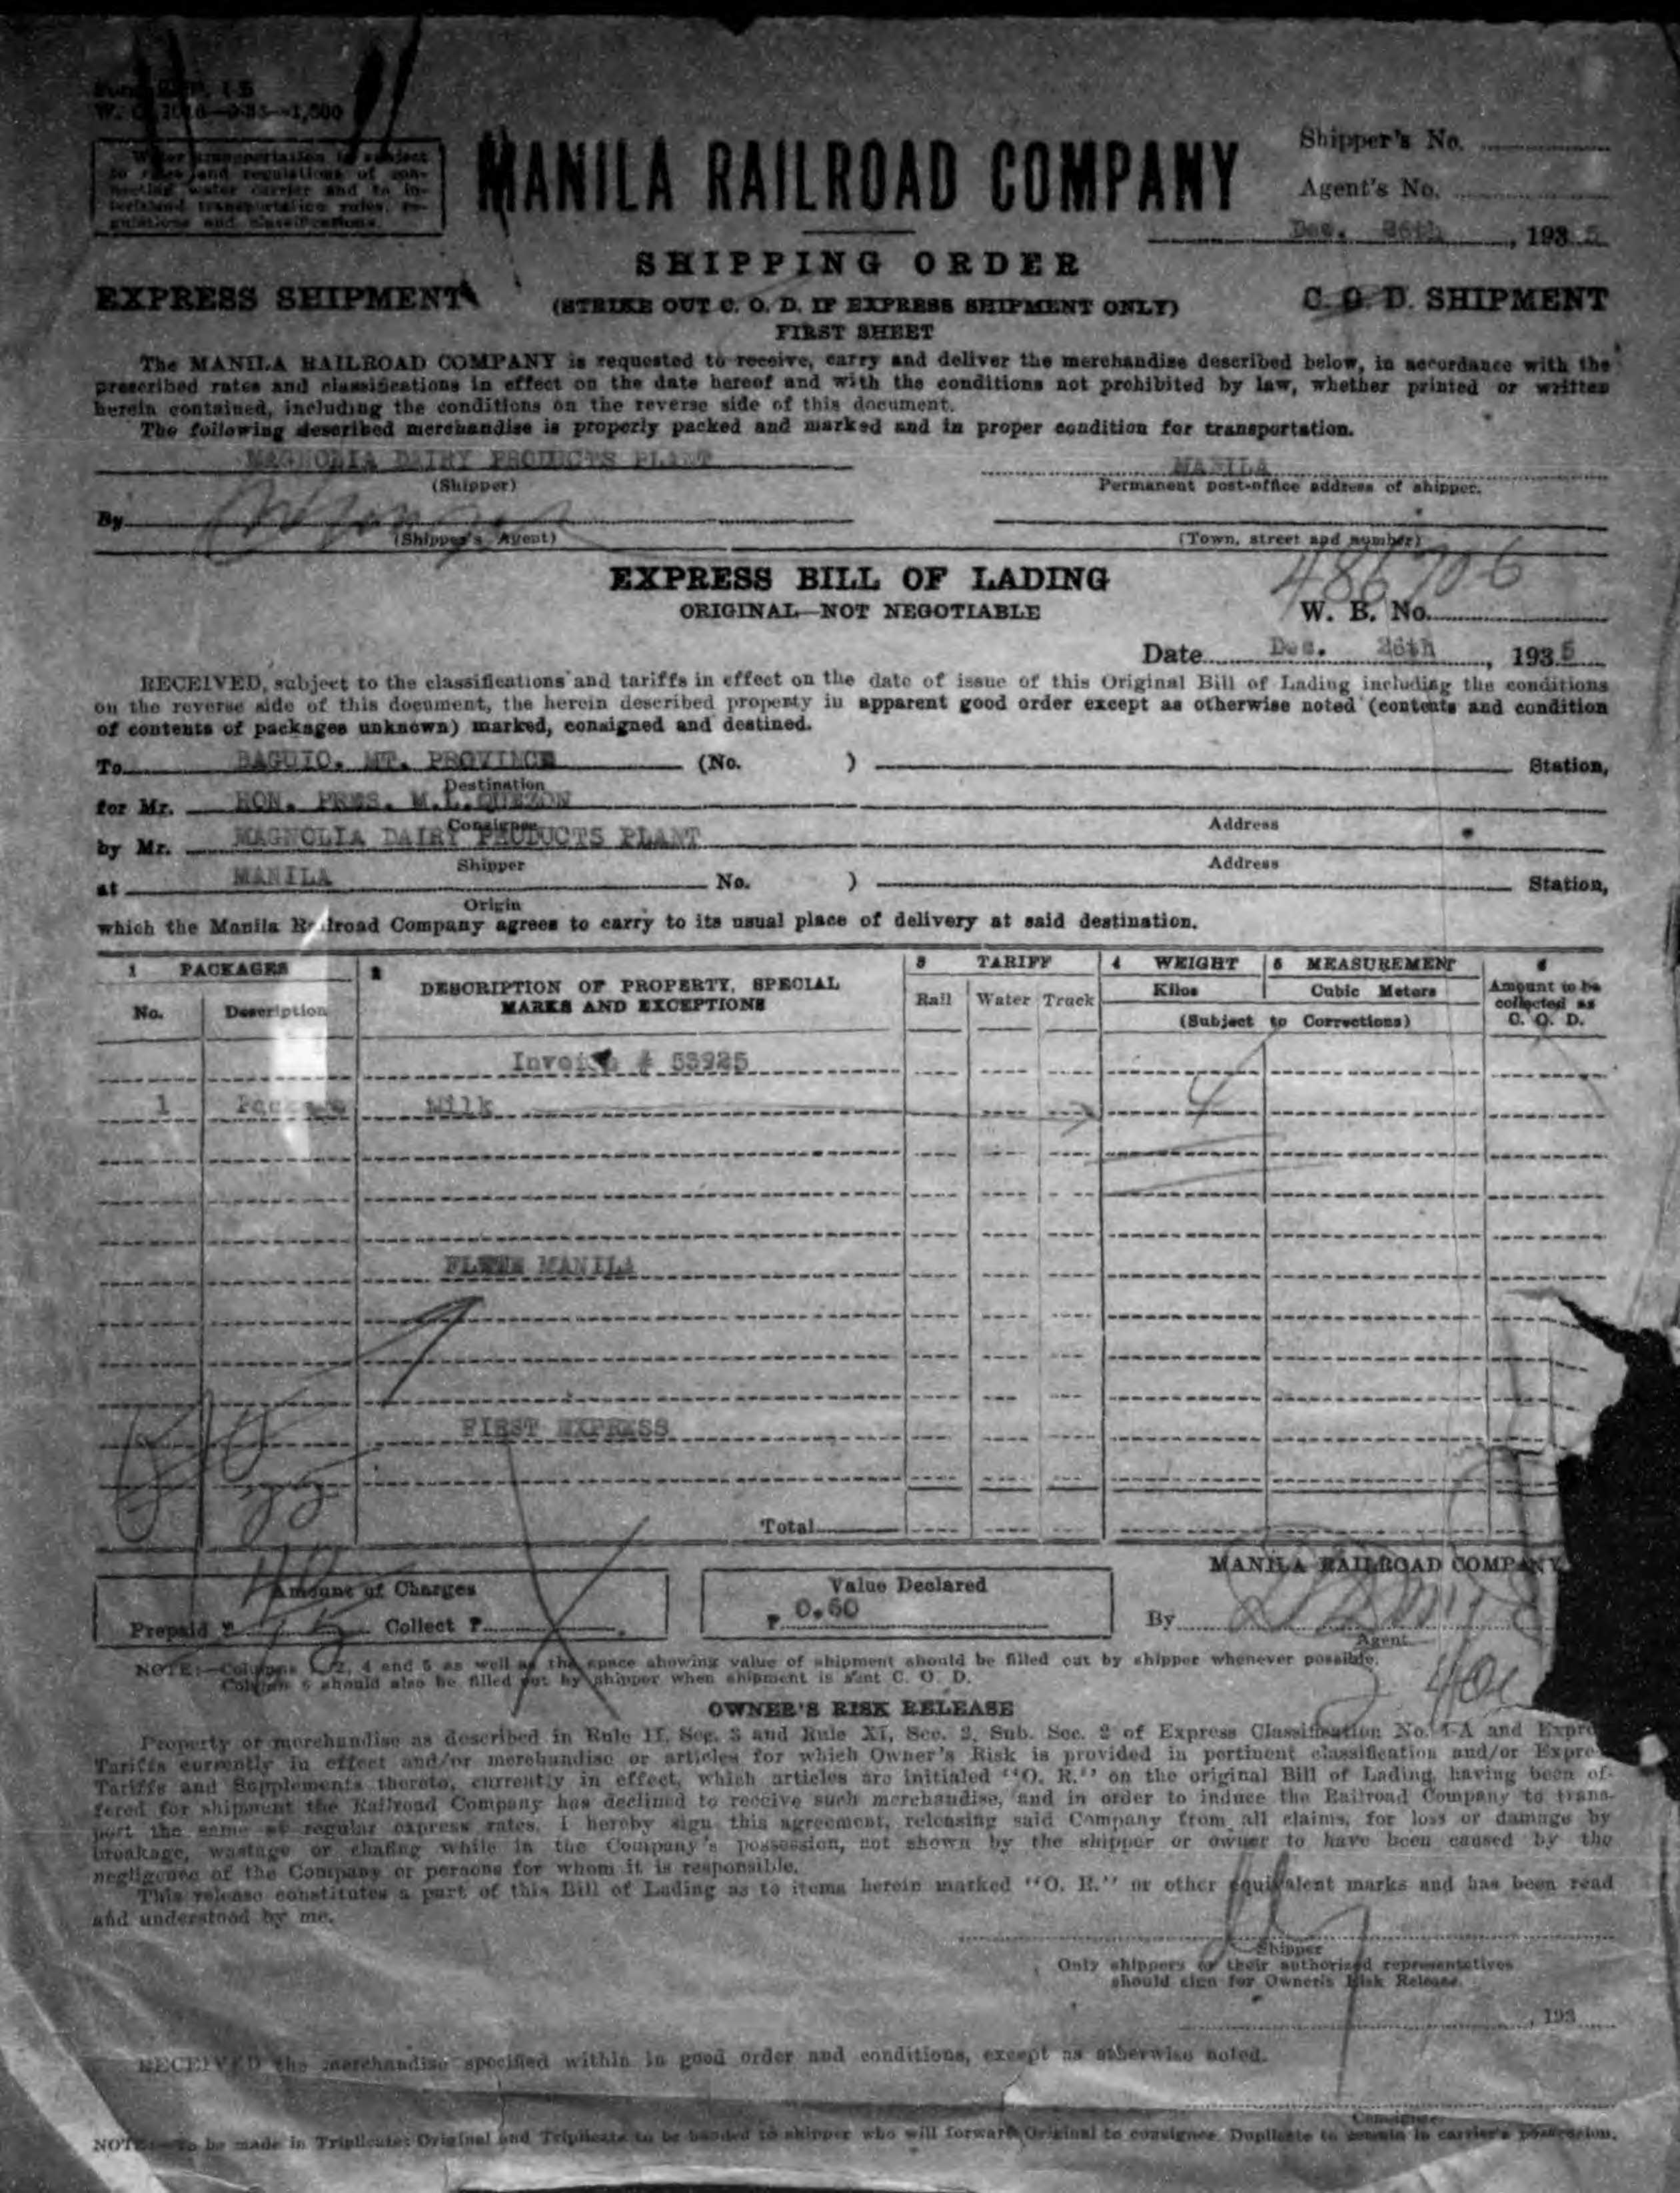 Water transportation is subject
to rates and regulations of con-
necting water carrier and to in-
terisland transportation rules, re-
gulations and classifications.
MANILA RAILROAD COMPANY
Shipper's No.
Agent's No.
Dec. 26th, 1935
SHIPPING ORDER
EXPRESS SHIPMENT
(STRIKE OUT C. O. D. IF EXPRESS SHIPMENT ONLY)
C. O. D. SHIPMENT
FIRST SHEET
The MANILA RAILROAD COMPANY is requested to receive, carry and deliver the merchandise described below, in accordance with the
prescribed rates and classifications in effect on the date hereof and with the conditions not prohibited by law, whether printed or written
herein contained, including the conditions on the reverse side of this document.
The following described merchandise is properly packed and marked and in proper condition for transportation.
MAGNOLIA DAIRY PRODUCTS PLANT
MANILA
(Shipper)
Permanent post-office address of shipper.
By
(Shipper's Agent)
(Town, street and number)
EXPRESS BILL OF LADING
486706
ORIGINAL—NOT NEGOTIABLE
W. B. No.
Date Dec. 26th, 1935
RECEIVED, subject to the classifications and tariffs in effect on the date of issue of this Original Bill of Lading including the conditions
on the reverse side of this document, the herein described property in apparent good order except as otherwise noted (contents and condition
of contents of packages unknown) marked, consigned and destined.
To BAGUIO, MT. PROVINCE (No. ) Station,
Destination
for Mr. HON. PRES. M.L.QUEZON
Consignee
Address
by Mr. MAGNOLIA DAIRY PRODUCTS PLANT
Shipper
Address
at MANILA No. ) Station,
Origin
which the Manila Railroad Company agrees to carry to its usual place of delivery at said destination.
1 PACKAGES
2 DESCRIPTION OF PROPERTY, SPECIAL
MARKS AND EXCEPTIONS
3 TARIFF
4 WEIGHT
5 MEASUREMENT
6
No. Description
Rail Water Truck
Kilos
Cubic Meters
Amount to be
collected as
C. O. D.
(Subject to Corrections)
Invoice # 53925
1 Package Milk 4
MANILA
FIRST EXPRESS
Total
MANILA RAILROAD COMPANY
Amount of Charges
Value Declared
Prepaid ₱ Collect ₱
₱ 0.60
By
Agent
NOTE:—Columns 1, 2, 4 and 5 as well as the space showing value of shipment should be filled out by shipper whenever possible.
Column 6 should also be filled out by shipper when shipment is sent C. O. D.
OWNER'S RISK RELEASE
Property or merchandise as described in Rule II, Sec. 3 and Rule XI, Sec. 2, Sub. Sec. 2 of Express Classification No. 1-A and Expre
Tariffs currently in effect and/or merchandise or articles for which Owner's Risk is provided in pertinent classification and/or Expre
Tariffs and Supplements thereto, currently in effect, which articles are initialed "O. R." on the original Bill of Lading, having been of-
fered for shipment the Railroad Company has declined to receive such merchandise, and in order to induce the Railroad Company to trans-
port the same at regular express rates, I hereby sign this agreement, releasing said Company from all claims, for loss or damage by
breakage, wastage or chafing while in the Company's possession, not shown by the shipper or owner to have been caused by the
negligence of the Company or persons for whom it is responsible.
This release constitutes a part of this Bill of Lading as to items herein marked "O. R." or other equivalent marks and has been read
and understood by me.
Shipper
Only shippers or their authorized representatives
should sign for Owner's Risk Release.
, 193
RECEIVED the merchandise specified within in good order and conditions, except as otherwise noted.
Consignee
NOTE:—To be made in Triplicate: Original and Triplicate to be handed to shipper who will forward Original to consignee. Duplicate to remain in carrier's possession.